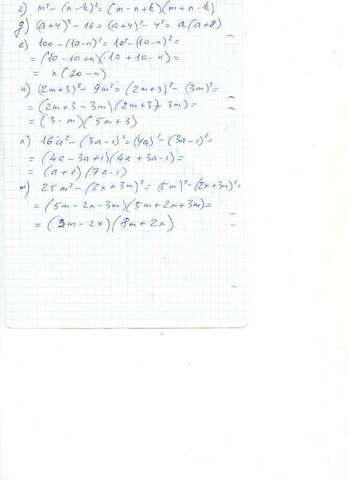 г) m² - (n-k)² = (m-n+k)(m+n-k)
д) (a+4)² - 16 = (a+4)² - 4² = a(a+8)
е) 100 - (10-n)² = 10² - (10-n)² =
= (10-10+n)(10+10-n) =
= n(20-n)
и) (2m+3)² - 9m² = (2m+3)² - (3m)² =
= (2m+3-3m)(2m+3+3m) =
= (3-m)(5m+3)
л) 16a² - (3a-1)² = (4a)² - (3a-1)² =
= (4a-3a+1)(4a+3a-1) =
= (a+1)(7a-1)
м) 25m² - (2x+3m)² = (5m)² - (2x+3m)² =
= (5m-2x-3m)(5m+2x+3m) =
= (3m-2x)(8m+2x)